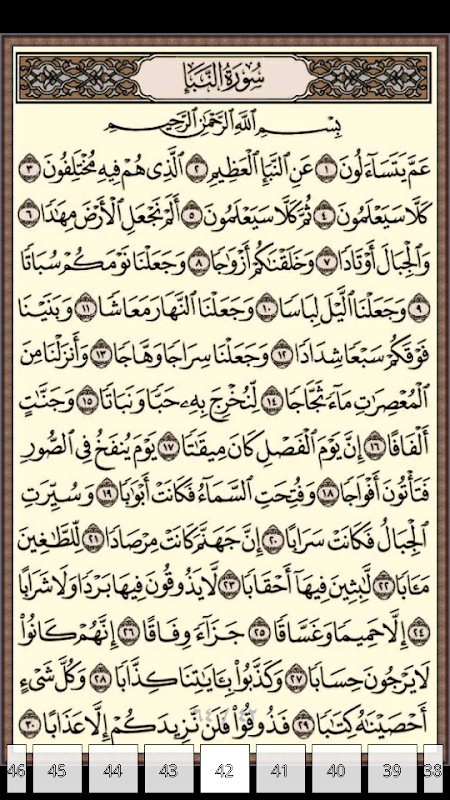 سُورَةُ النَّبَإِ
بِسْمِ اللَّهِ الرَّحْمَٰنِ الرَّحِيمِ
عَمَّ يَتَسَآءَلُونَ ١ عَنِ النَّبَإِ الْعَظِيمِ ٢ الَّذِى هُمْ فِيهِ مُخْتَلِفُونَ ٣
كَلَّا سَيَعْلَمُونَ ٤ ثُمَّ كَلَّا سَيَعْلَمُونَ ٥ أَلَمْ نَجْعَلِ الْأَرْضَ مِهَٰدًا ٦
وَالْجِبَالَ أَوْتَادًا ٧ وَخَلَقْنَٰكُمْ أَزْوَٰجًا ٨ وَجَعَلْنَا نَوْمَكُمْ سُبَاتًا
٩ وَجَعَلْنَا الَّيْلَ لِبَاسًا ١٠ وَجَعَلْنَا النَّهَارَ مَعَاشًا ١١ وَبَنَيْنَا
فَوْقَكُمْ سَبْعًا شِدَادًا ١٢ وَجَعَلْنَا سِرَاجًا وَهَّاجًا ١٣ وَأَنزَلْنَا مِنَ
الْمُعْصِرَٰتِ مَآءً ثَجَّاجًا ١٤ لِّنُخْرِجَ بِهِۦ حَبًّا وَنَبَاتًا ١٥ وَجَنَّٰتٍ
أَلْفَافًا ١٦ إِنَّ يَوْمَ الْفَصْلِ كَانَ مِيقَٰتًا ١٧ يَوْمَ يُنفَخُ فِى الصُّورِ
فَتَأْتُونَ أَفْوَاجًا ١٨ وَفُتِحَتِ السَّمَآءُ فَكَانَتْ أَبْوَٰبًا ١٩ وَسُيِّرَتِ
الْجِبَالُ فَكَانَتْ سَرَابًا ٢٠ إِنَّ جَهَنَّمَ كَانَتْ مِرْصَادًا ٢١ لِّلطَّٰغِينَ
مَـَٔابًا ٢٢ لَّٰبِثِينَ فِيهَآ أَحْقَابًا ٢٣ لَّا يَذُوقُونَ فِيهَا بَرْدًا وَلَا شَرَابًا
٢٤ إِلَّا حَمِيمًا وَغَسَّاقًا ٢٥ جَزَآءً وِفَاقًا ٢٦ إِنَّهُمْ كَانُوا۟
لَا يَرْجُونَ حِسَابًا ٢٧ وَكَذَّبُوا۟ بِـَٔايَٰتِنَا كِذَّابًا ٢٨ وَكُلَّ شَىْءٍ
أَحْصَيْنَٰهُ كِتَٰبًا ٢٩ فَذُوقُوا۟ فَلَن نَّزِيدَكُمْ إِلَّا عَذَابًا ٣٠
46 45 44 43 42 41 40 39 38